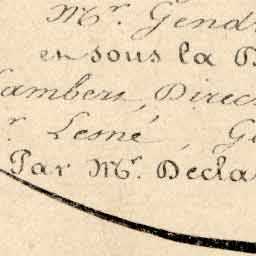 Mr. Gend
en sous la D
Lambert, Direc
r. Lesné, G
Par Mr. Decla